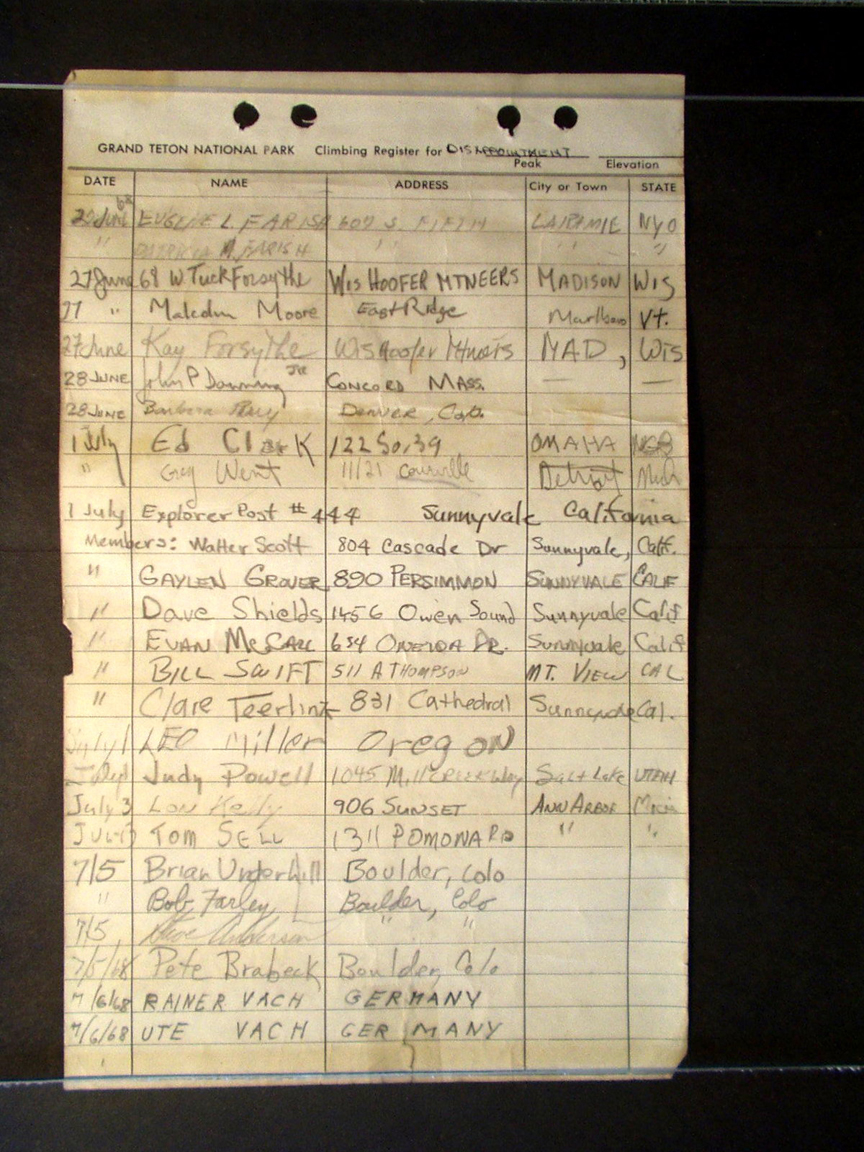 GRAND TETON NATIONAL PARK Climbing Register for DISAPPOINTMENT
Peak Elevation
DATE NAME ADDRESS City or Town STATE
68
June EUGENE L FARISH 609 S. FIFTH LARAMIE WYO
" PATRICIA M. FARISH " " " " "
27 June 68 W Tuck Forsythe WIS HOOFER MTNEERS MADISON WIS
27 " Malcolm Moore East Ridge Marlboro Vt.
27 June Kay Forsythe Wis Hoofer Mtneers MAD, WIS
28 JUNE John P Downing JR CONCORD MASS. — —
28 JUNE Barbara DENVER, Colo.
1 July Ed Clark 122 So. 39 OMAHA NEB
" Greg Went 11121 Courville Detroit Mich
1 July Explorer Post #444 Sunnyvale California
Members: Walter Scott 804 Cascade Dr Sunnyvale, Calif.
" GAYLEN GROVER 890 PERSIMMON SUNNYVALE CALIF
" Dave Shields 1456 Owen Sound Sunnyvale Calif
" EVAN McCALL 654 ONEIDA DR. Sunnyvale Calif
" BILL SWIFT 511 A THOMPSON MT. VIEW CAL
" Clare Teerlink 831 Cathedral Sunnyvale Cal.
July 1 LEO Miller Oregon
July 1 Judy Powell 1045 Mill Creek Way Salt Lake UTAH
July 3 Lon Kelly 906 SUNSET ANN ARBOR Mich
JULY 3 TOM SELL 1311 POMONA RD " "
7/5 Brian Underhill Boulder, Colo
" Bob Farley Boulder, Colo
7/5 Steve Anderson " "
7/5/68 Pete Brabeck Boulder, Colo
7/6/68 RAINER VACH GERMANY
7/6/68 UTE VACH GERMANY